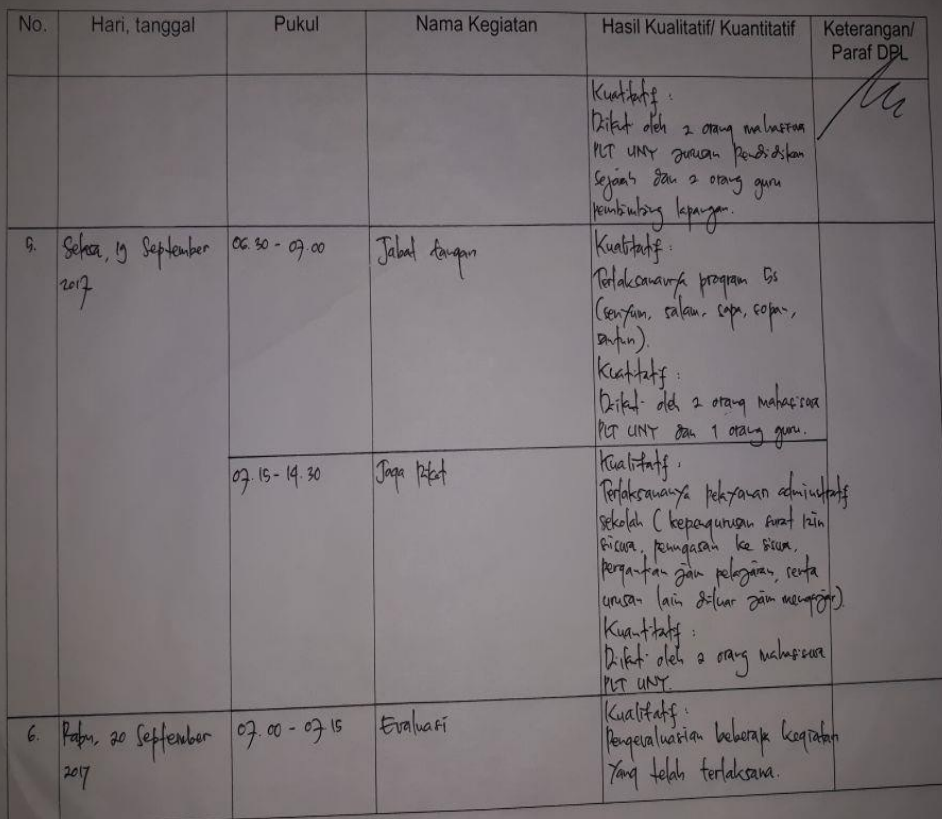 No. Hari, tanggal Pukul Nama Kegiatan Hasil Kualitatif/ Kuantitatif Keterangan/
Paraf DPL
Kuatitatif :
Diikuti oleh 2 orang mahasiswa
PLT UNY jurusan Pendidikan
Sejarah dan 2 orang guru
pembimbing lapangan.
5. Selasa, 19 September 06.30 - 07.00 Jabat tangan Kualitatif :
2017
Terlaksananya program 5s
(senyum, salam, sapa, sopan,
santun).
Kuatitatif :
Diikuti oleh 2 orang mahasiswa
PLT UNY dan 1 orang guru.
07.15 - 14.30 Jaga Piket Kualitatif :
Terlaksananya pelayanan administratif
sekolah ( kepengurusan surat izin
siswa, penugasan ke siswa,
pergantian jam pelajaran, serta
urusan lain diluar jam mengajar)
Kuantitatif :
Diikuti oleh 2 orang mahasiswa
PLT UNY.
6. Rabu, 20 September 07.00 - 07.15 Evaluasi Kualitatif :
2017
Pengevaluasian beberapa kegiatan
yang telah terlaksana.